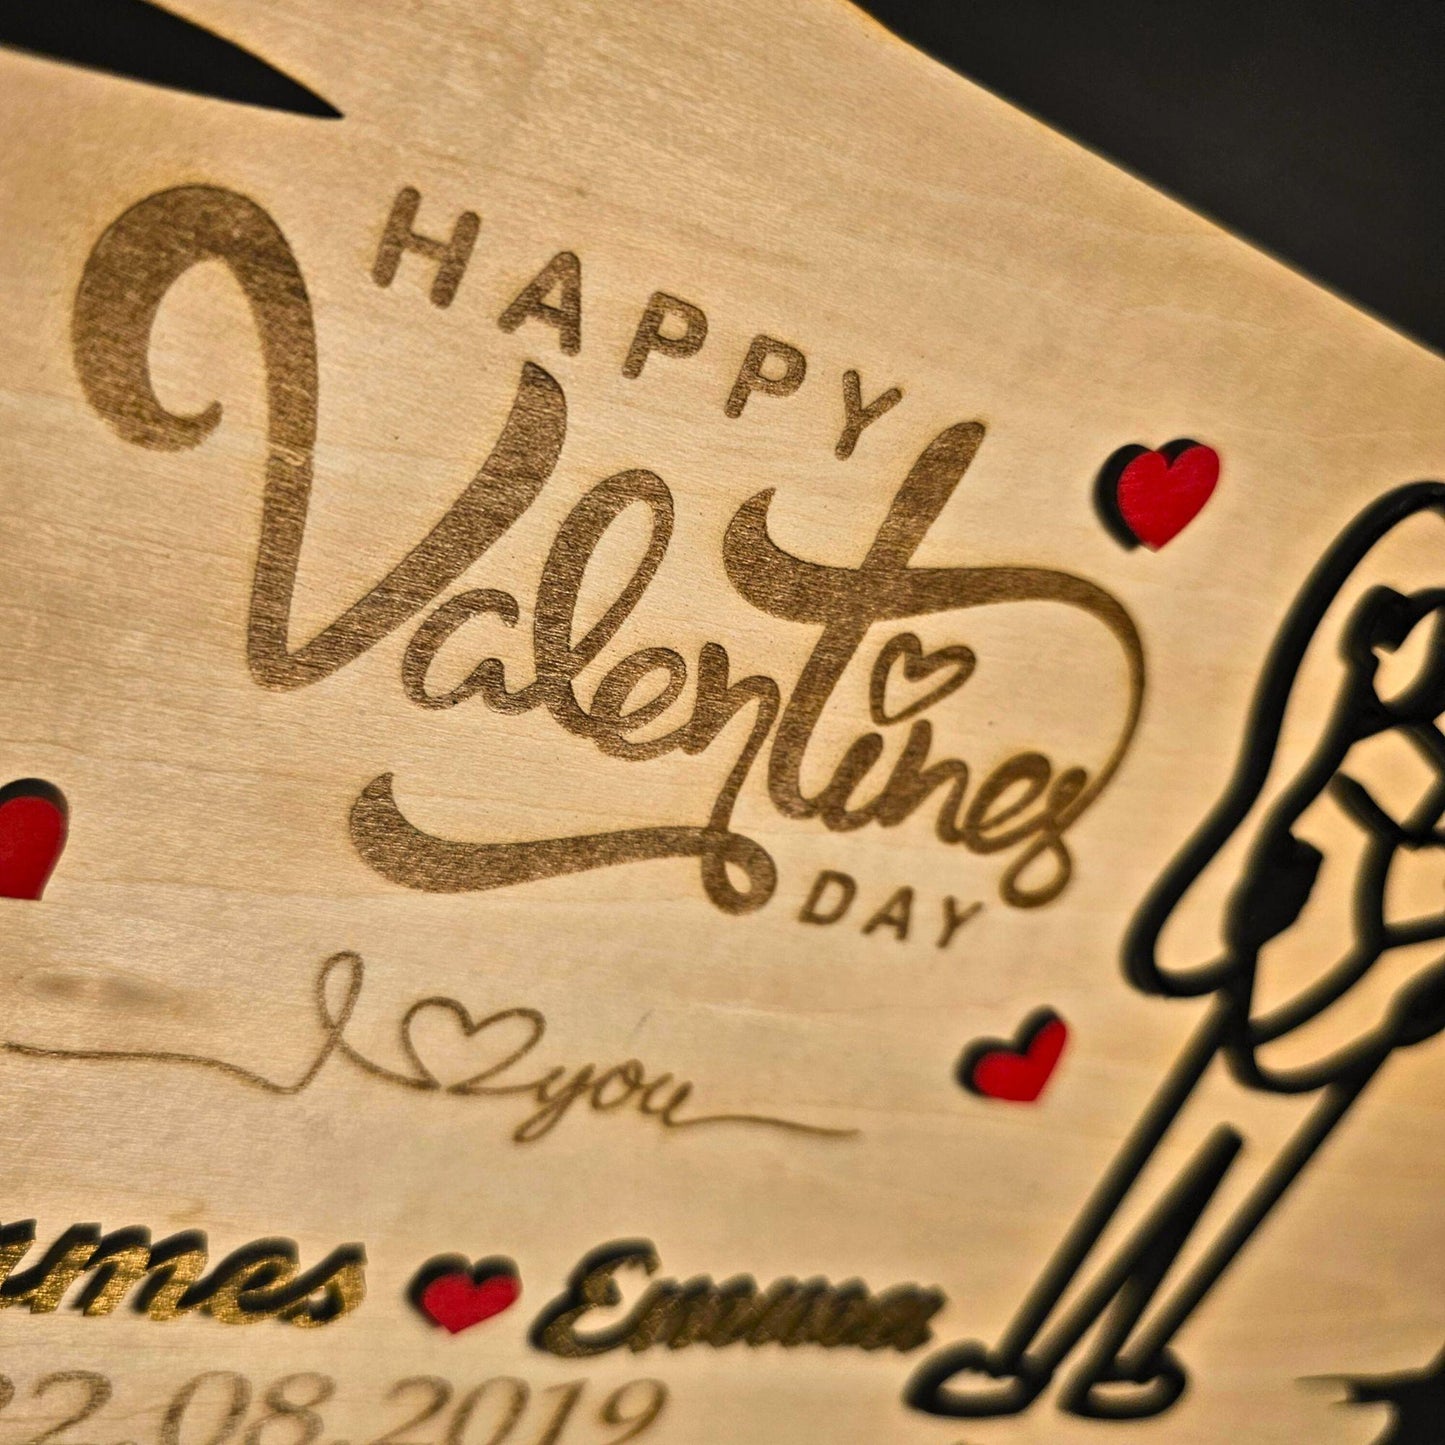 HAPPY
Valentines
DAY
I you
Emma
.08.2019